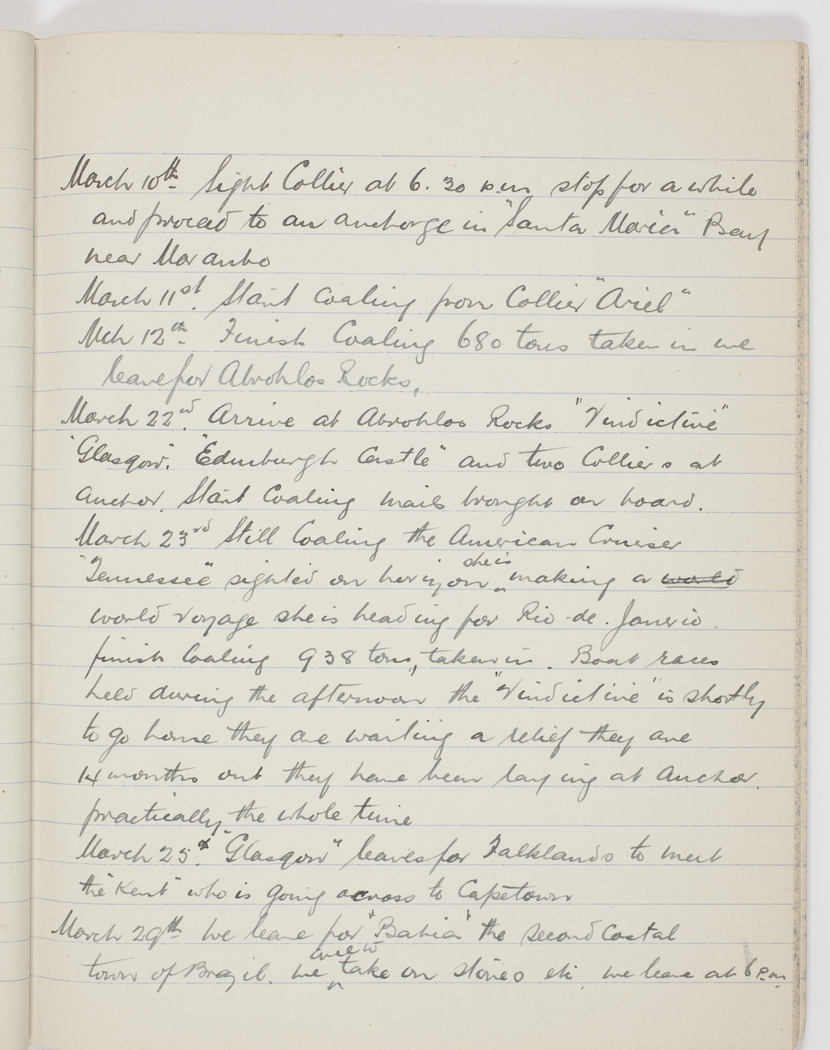 March 10th Sight Collier at 6.30 p.m. stop for a while
and proceed to an anchorge in "Santa Maria" Bay
near Maranho
March 11st. Start Coaling from Collier "Ariel"
Mch 12th Finish Coaling 680 tons taken in we
leave for Abrohlos Rocks.
March 22nd. Arrive at Abrohlos Rocks "Vindictive"
"Glasgow". "Edinburgh Castle" and two Colliers at
Anchor. Start Coaling mails brought on board.
March 23rd Still Coaling the American Cruiser
"Tennessee" sighted on horizon she is making a world
world voyage she is heading for Rio-de-Janerio.
finish Coaling 938 tons, taken in. Boat races
held during the afternoon the "Vindictive" is shortly
to go home they are waiting a relief they are
14 months out they have been laying at Anchor.
practically the whole time
March 25th. "Glasgow" leaves for Falklands to meet
the "Kent" who is going across to Capetown
March 29th We leave for "Bahia" the second Costal
town of Brazil. We are to take on stores etc, we leave at 6 P.m.